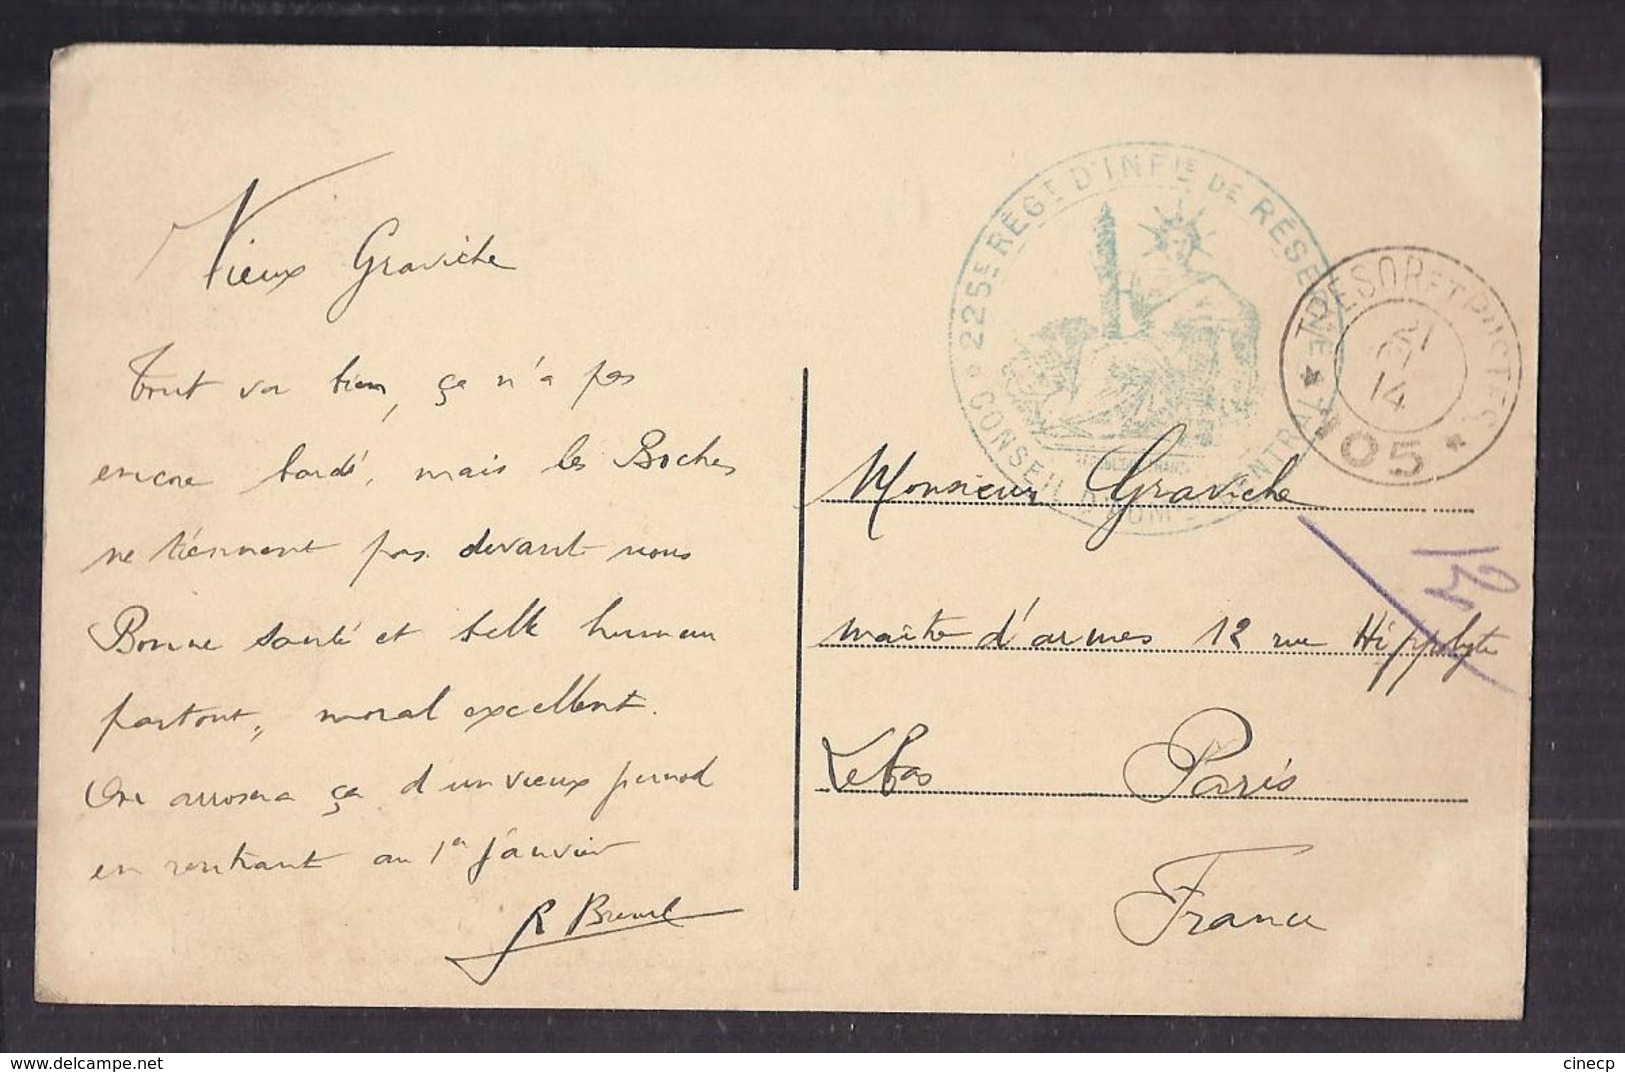 Vieux Graviche
Tout va bien, ça n'a pas
encore bardé, mais les Boches
ne tiennent pas devant nous
Bonne santé et belle humeur
partout, moral excellent.
On arrosera ça d'un vieux pernod
en rentrant au 1er Janvier
R Breuil
225E RÉGT D'INFIE DE RÉSERVE
CONSEIL D'ADMON CENTRAL
TRÉSOR ET POSTES
21
14
* 105 *
Monsieur Graviche
maître d'armes 12 rue Hippolyte
Lebas Paris
France
12
cinecp